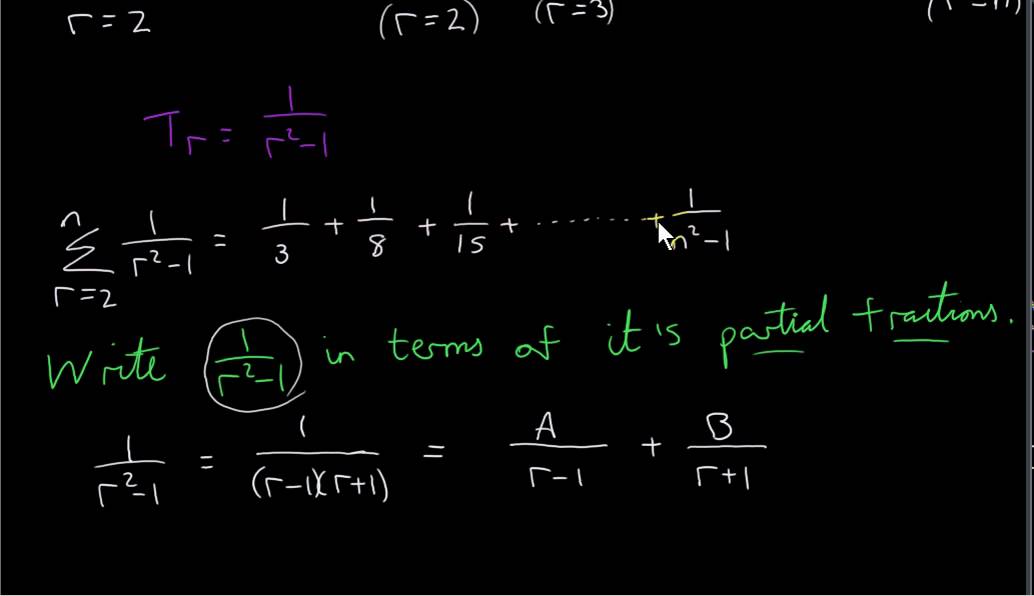 r = 2 (r = 2) (r = 3)
T_r = 1/(r²-1)
n ∑ r=2 1/(r²-1) = 1/3 + 1/8 + 1/15 + ........ + 1/(n²-1)
Write 1/(r²-1) in terms of it's partial fractions.
1/(r²-1) = 1/((r-1)(r+1)) = A/(r-1) + B/(r+1)